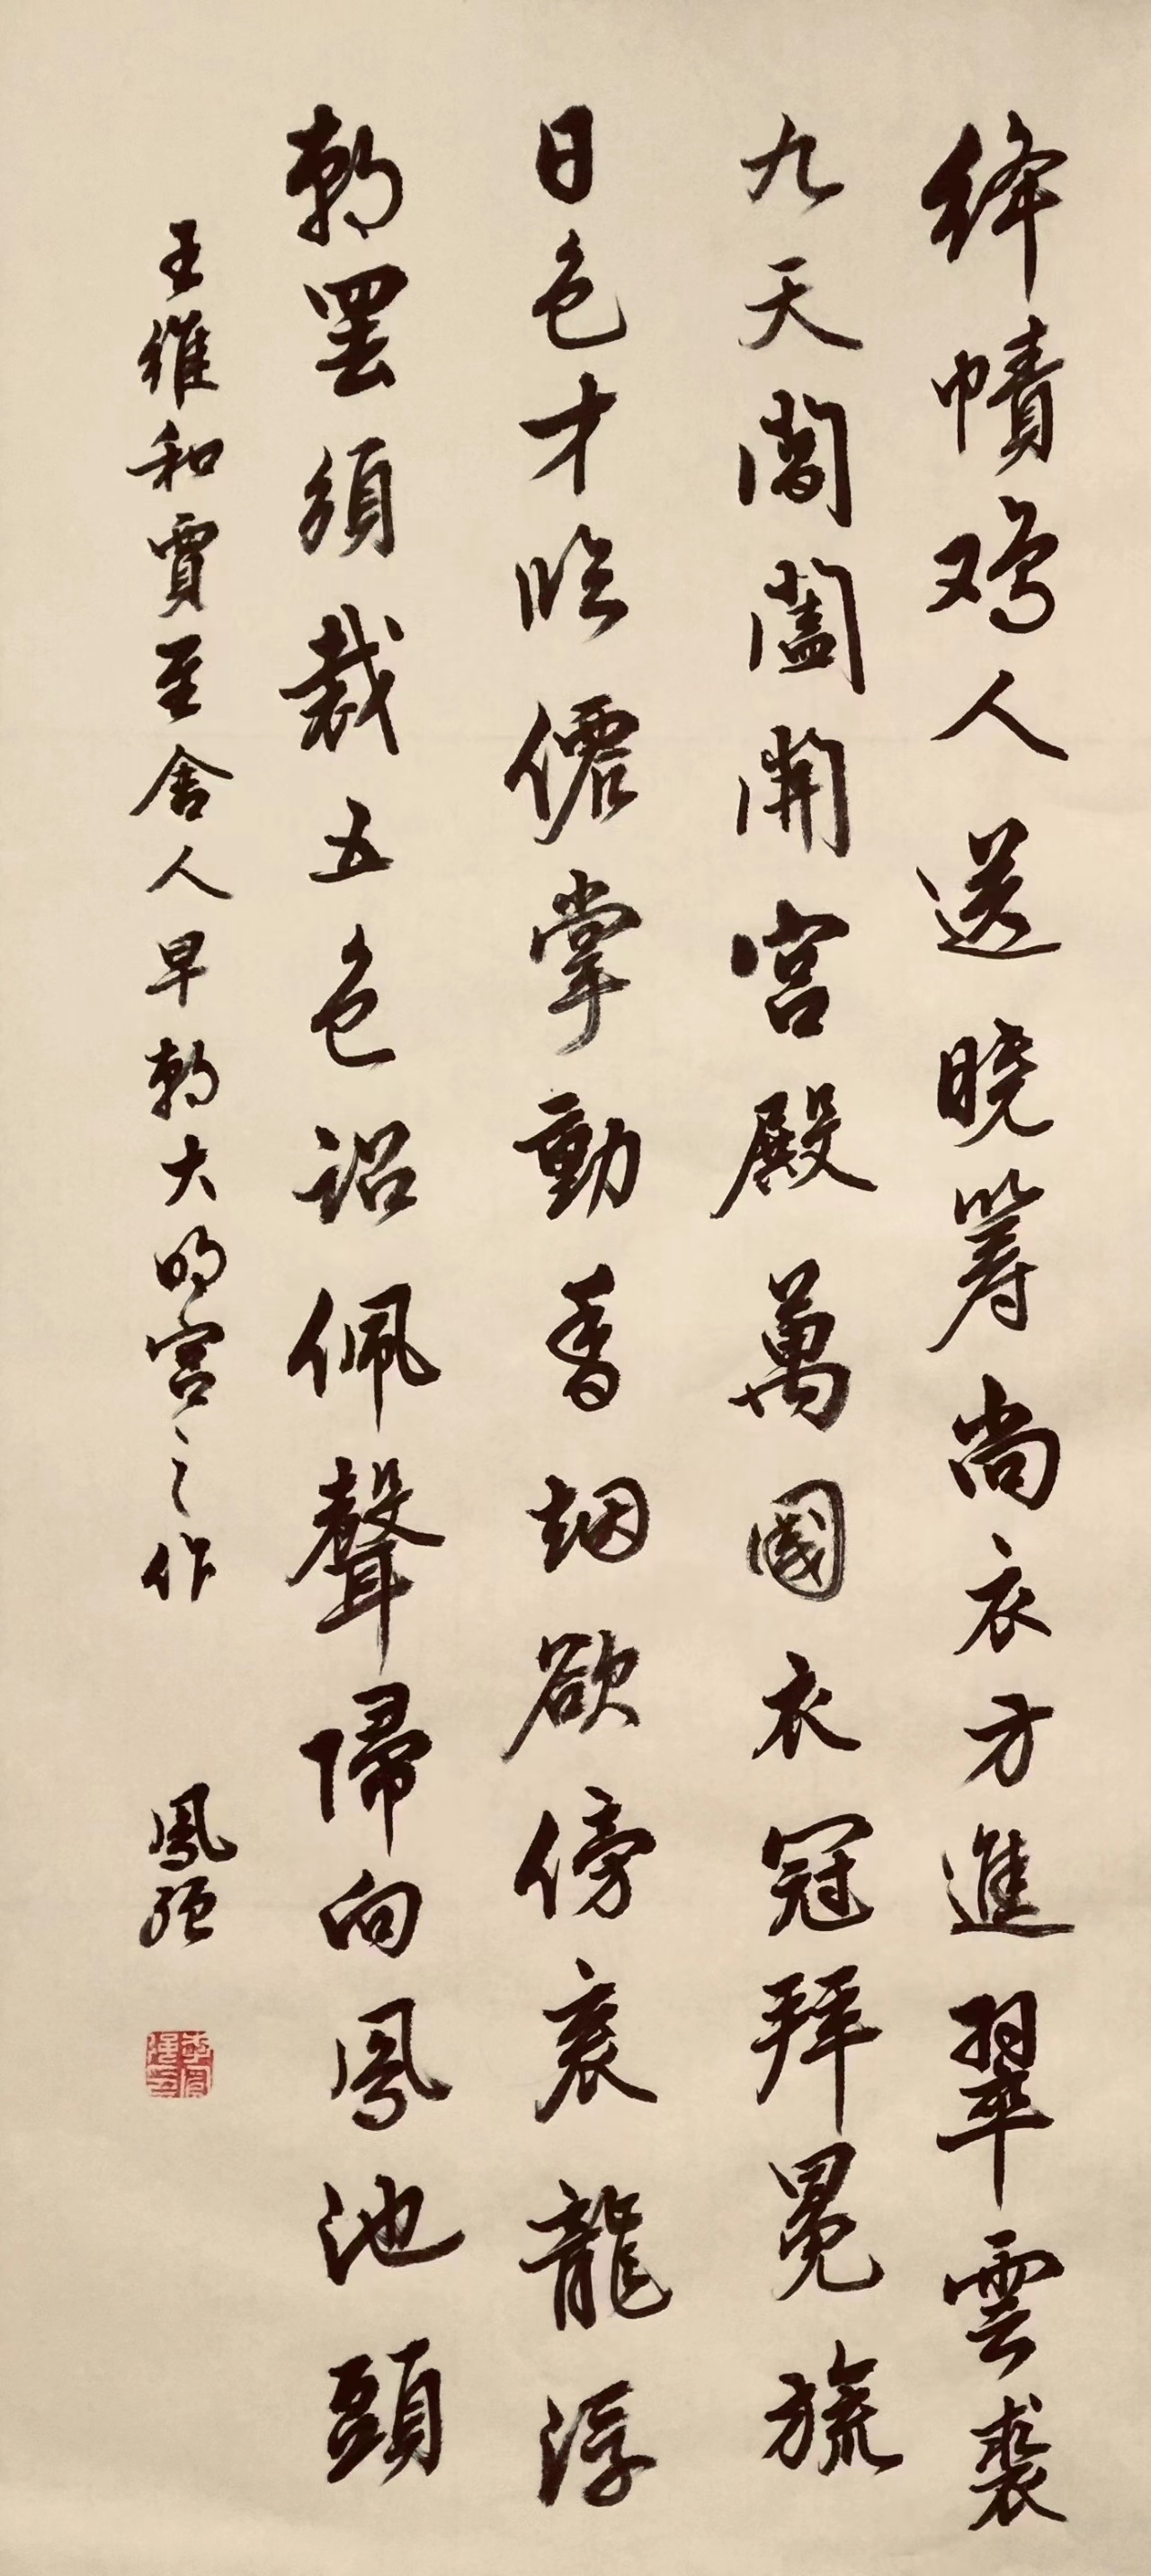 絳幘鸡人送曉筹尚衣方進翠雲裘
九天閶闔開宫殿萬國衣冠拜冕旒
日色才临僊掌動香烟欲傍衮龍浮
朝罢須裁五色詔佩聲歸向鳳池頭
王維和賈至舍人早朝大明宫之作
鳳强
李鳳强印